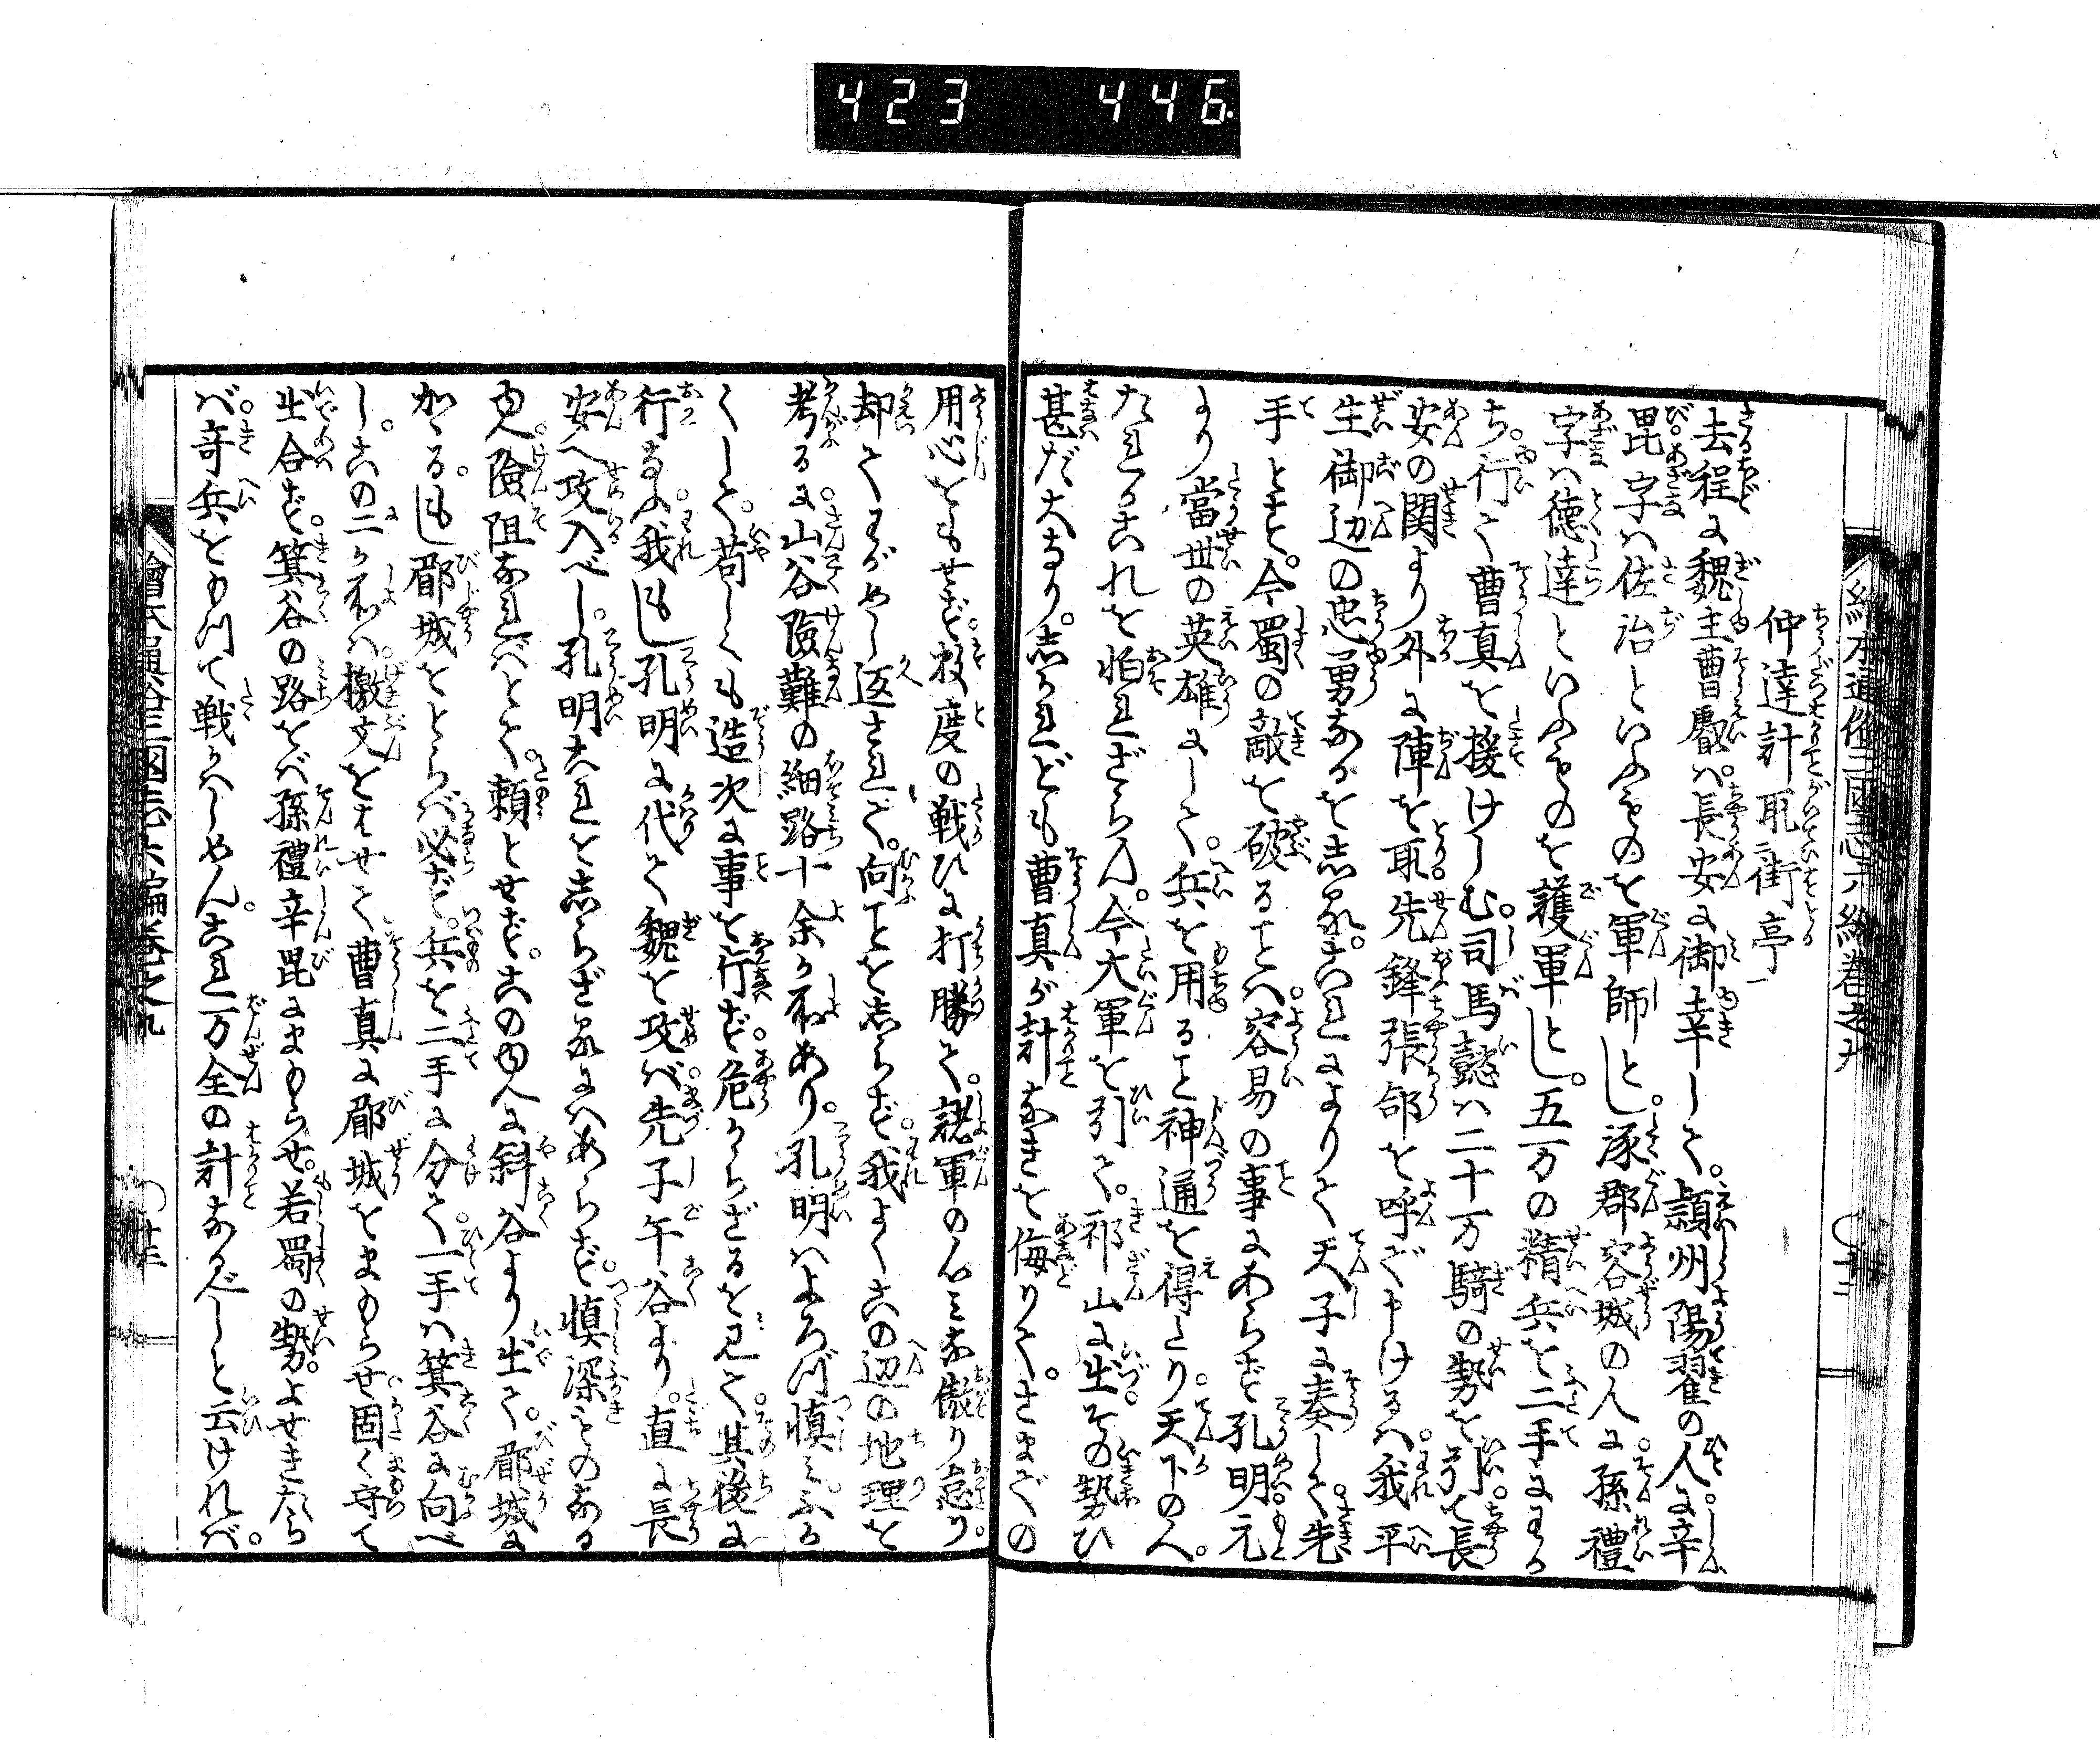 423 446
仲達計取街亭
去程に魏主曹叡ハ長安に御幸して。頴州陽翟の人に辛
毘字ハ佐治といふものを軍師とし。涿郡容城の人に孫禮
字ハ徳達といふものを護軍とし。五万の精兵を二手にわか
ち。行て曹真を援けしむ。司馬懿ハ二十万騎の勢を引て長
安の関より外に陣を取先鋒張郃を呼で申けるハ。我平
生御辺の忠勇なるを志る。これによりて天子に奏して先
手とす。今蜀の敵を破ることハ。容易の事にあらず孔明元
より當世の英雄にして。兵を用ること神通を得たり。天下の人。
たれかこれを怕れざらん。今大軍を引て。祁山に出。その勢ひ
甚だ大なり。志かれども曹真が計なきを侮りて。さまでの
用心をもせず。数度の戦ひに打勝て。諸軍の心みな傲り怠り。
却てわがやし返されて。向ことを志らず。我よくこの辺の地理を
考るに。山谷険難の細路十余ヶ所あり。孔明ハよろづ慎みふか
くして。苟しくも造次に事を行ず。危からざるを見て。其後に
行なふ。我もし孔明に代て魏を攻ば。先子午谷より。直に長
安へ攻入べし。孔明これを志らざるにハあらず。慎深きものなる
ゆへ。険阻なれバとて。頼とせず。このゆへに斜谷より出て。郿城に
かゝる。もし郿城をとらバ必ず。兵を二手に分て。一手ハ箕谷に向べ
し。この二ヶ所ハ。檄文をはせて曹真に郿城をまもらせ固く守て
出合ず。箕谷の路をバ孫禮辛毘にまもらせ。若蜀の勢。よせきたら
バ。奇兵をもつて戦ハしめん。これ万全の計なるべしと云けれバ。
繪本通俗三國志六編巻之九